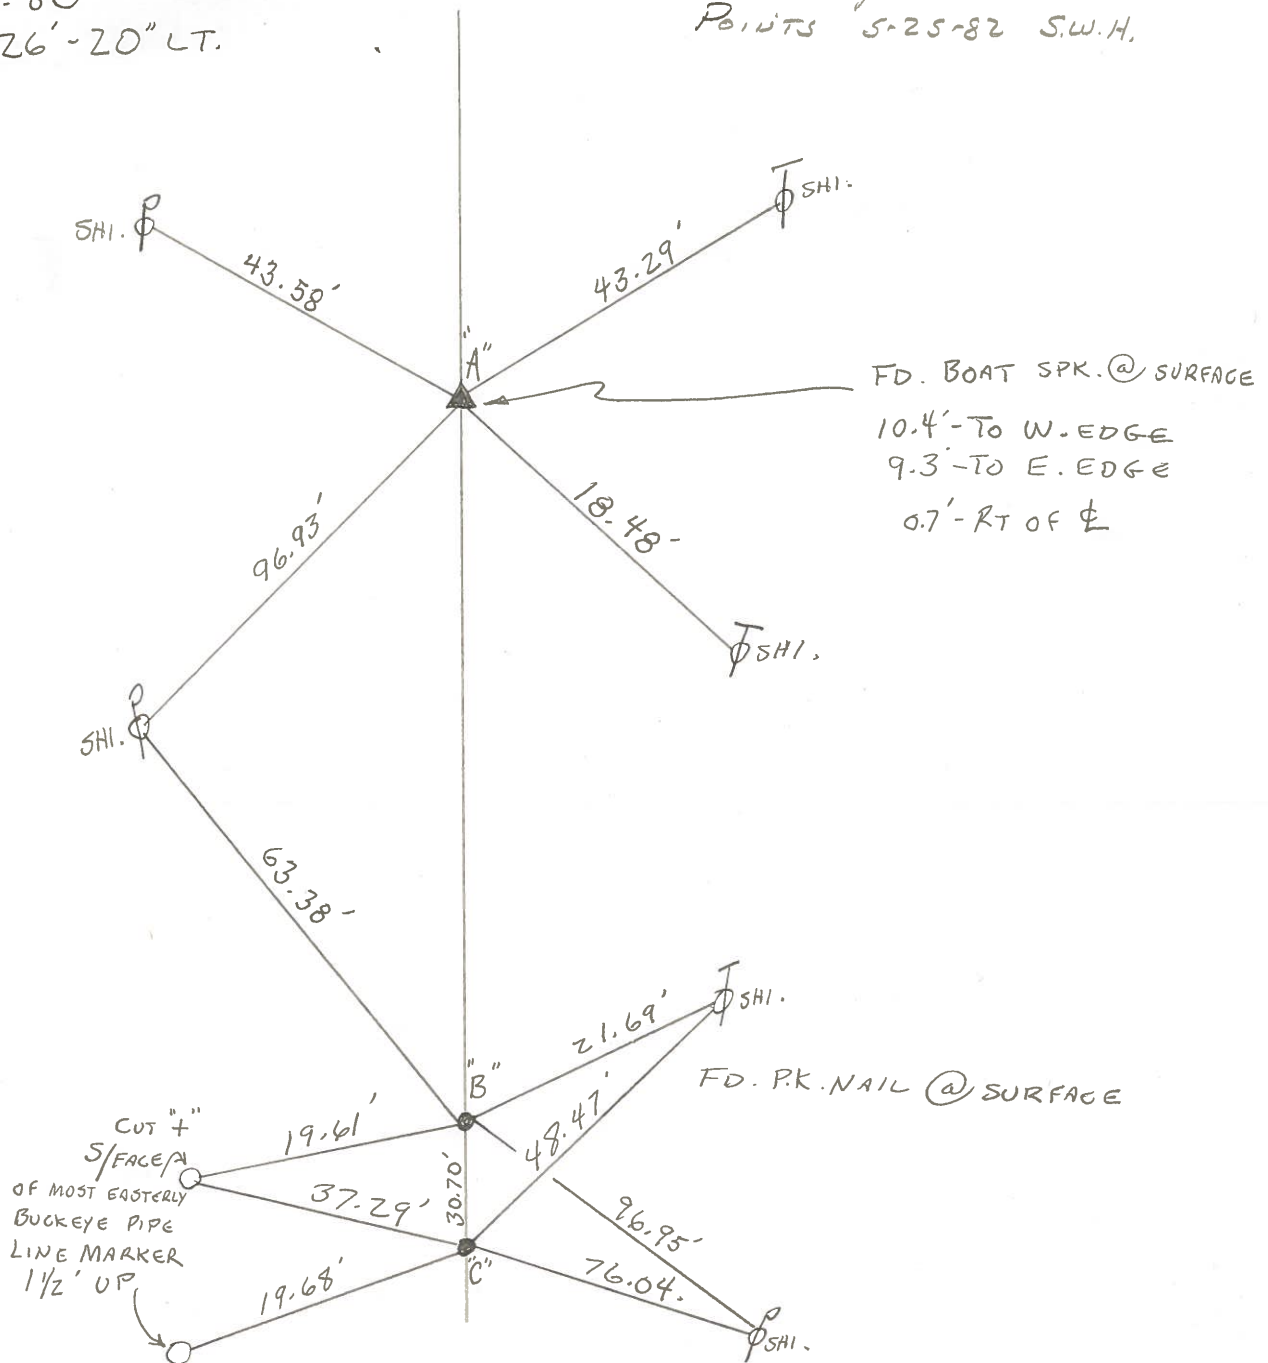 26'-20" LT.
POINTS 5-25-82 S.W.H.
SHI.
43.58'
43.29'
SHI.
"A"
FD. BOAT SPK. @ SURFACE
10.4'-TO W. EDGE
9.3'-TO E. EDGE
0.7'-RT OF ℄
96.93'
18.48-
SHI.
SHI.
63.38-
SHI.
21.69'
"B"
FD. P.K. NAIL @ SURFACE
48.47'
CUT "+"
OF MOST EASTERLY
BUCKEYE PIPE
LINE MARKER
1 1/2' UP
19.61'
37.29'
30.70'
96.95'
76.04.
"C"
19.68'
SHI.